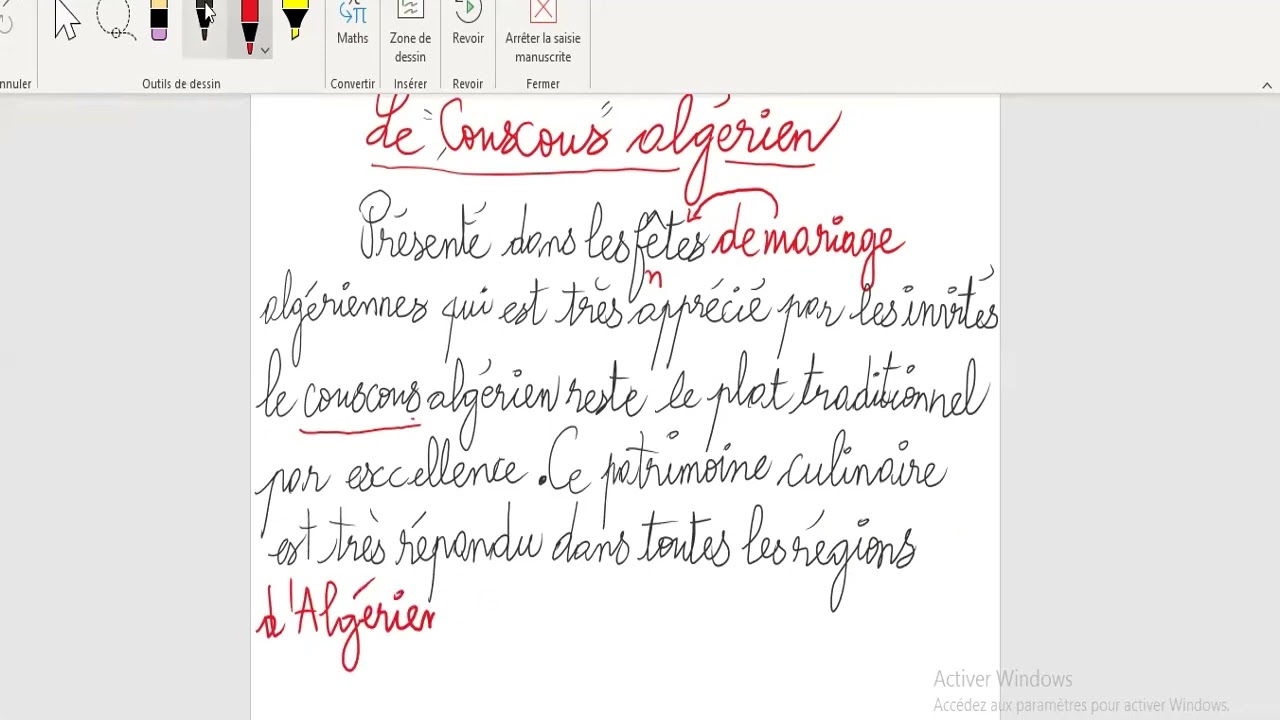 nnuler
Outils de dessin
Maths
Convertir
Zone de dessin
Insérer
Revoir
Revoir
Arrêter la saisie manuscrite
Fermer
Le "Couscous" algérien
Présenté dans les fêtes de mariage
n
algériennes qui est très apprécié par les invités
le couscous algérien reste le plat traditionnel
par excellence. Ce patrimoine culinaire
est très répandu dans toutes les régions
d'Algérien
Activer Windows
Accédez aux paramètres pour activer Windows.